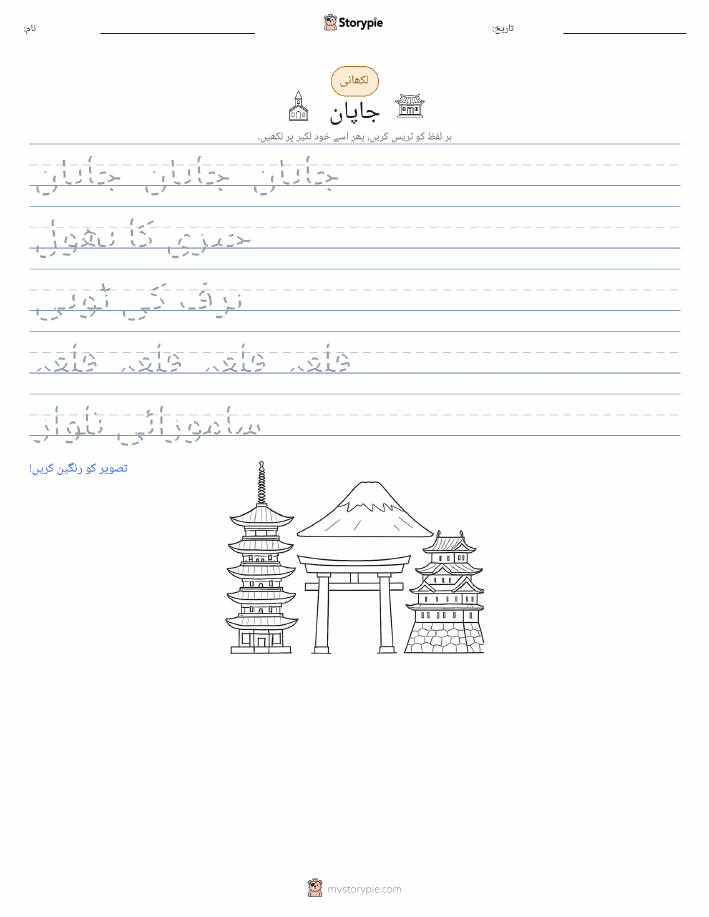 نام:
Storypie
تاریخ:
لکھائی
جاپان
ہر لفظ کو ٹریس کریں، پھر اسے خود لکیر پر لکھیں۔
جاپان جاپان جاپان
چیری کا پھول
برف کی ٹوپی
قلعہ قلعہ قلعہ قلعہ
سامورائی تلوار
تصویر کو رنگین کریں!
mystorypie.com